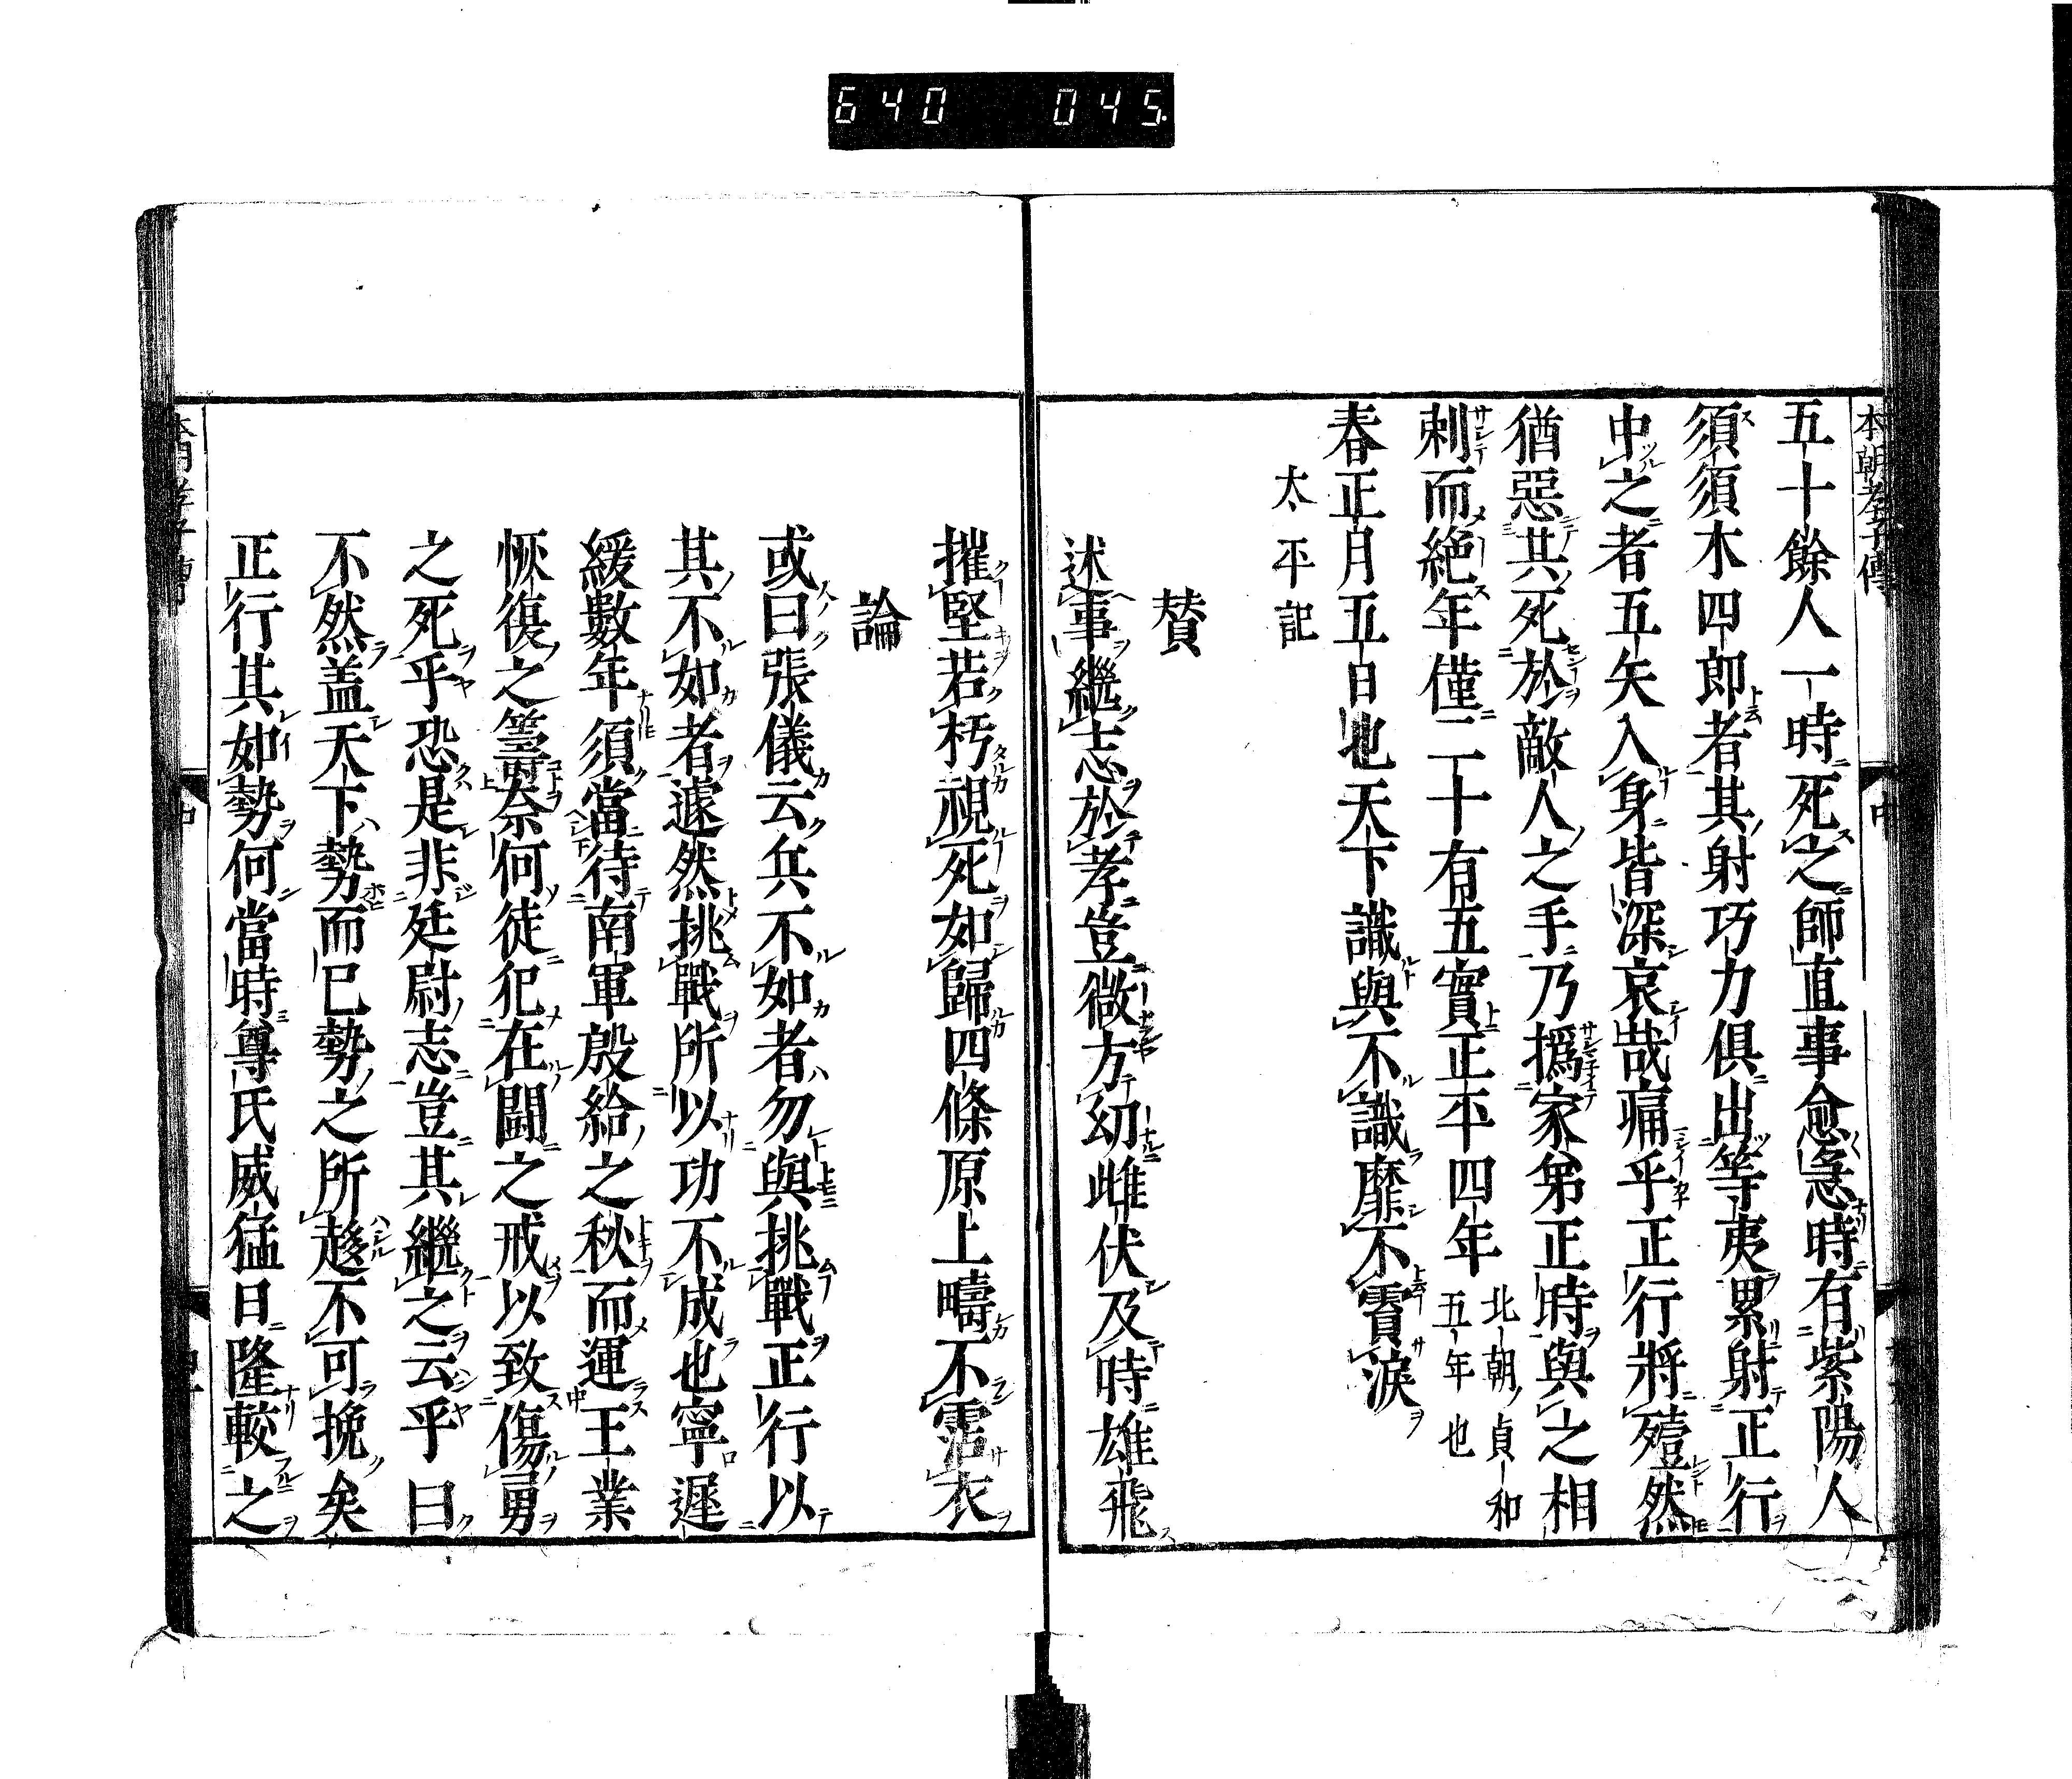 640 045
本朝孝子傳 中
五十餘人一時死之師直事愈急時有紫陽人
須須木四郎者其射巧力俱出等夷累射正行
中之者五矢入身皆深哀哉痛乎正行將殪然
猶惡其死於敵人之手乃撝家弟正時與之相
刺而絶年僅二十有五實正平四年
北朝貞和
五年也
春正月五日也天下識與不識靡不賈淚
太平記
賛
述事繼志於孝豈微方幼雌伏及時雄飛
摧堅若朽視死如歸四條原上疇不霑衣
論
或曰張儀云兵不如者勿與挑戰正行以
其不如者遽然挑戰所以功不成也寧遲
緩數年須當待南軍殷給之秋而運王業
恢復之籌奈何徒犯在鬪之戒以致傷勇
之死乎恐是非廷尉志豈其繼之云乎曰
不然盖天下勢而已勢之所趍不可挽矣
正行其如勢何當時尊氏威猛日隆較之
中